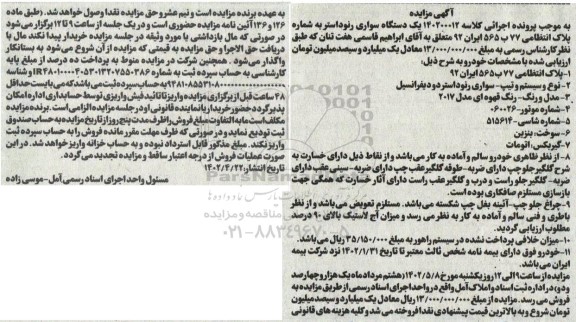 آگهی مزایده
به موجب پرونده اجرائی کلاسه ۱۴۰۲۰۰۰۱۲ یک دستگاه سواری رنوداستر به شماره
پلاک انتظامی ۷۷ ب ۵۶۵ ایران ۹۲ متعلق به آقای ابراهیم قاسمی هفت تنان که طبق
نظر کارشناس رسمی به مبلغ ۱۳/۰۰۰/۰۰۰/۰۰۰ معادل یک میلیارد و سیصد میلیون تومان
ارزیابی شده با مشخصات خودرو به شرح ذیل:
۱- پلاک انتظامی ۷۷ ب ۵۶۵ ایران ۹۲
۲- نوع و سیستم و تیپ- سواری رنو داستر دو دیفرانسیل
۳- مدل و رنگ- رنگ قهوه ای مدل ۲۰۱۷
۴- شماره موتور- ۰۶۰۰۲۶
۵- شماره شاسی- ۵۱۵۶۱۴
۶- سوخت: بنزین
۷- گیربکس: اتومات
۸- از نظر ظاهری خودرو سالم و آماده به کار می باشد و از نقاط ذیل دارای خسارت به
شرح گلگیر جلو چپ دارای ضربه- طوقه گلگیر عقب چپ دارای ضربه- سینی عقب دارای
ضربه- گلگیر جلو راست و درب و گلگیر عقب راست دارای آثار خسارت که همگی جهت
بازسازی مستلزم صافکاری بوده است.
۹- چراغ جلو چپ- آئینه بغل چپ شکسته می باشد. مستلزم تعویض می باشد و از نظر
باطری و فنی سالم و آماده به کار به نظر می رسد و میزان آج لاستیک بالای ۹۰ درصد
مطلوب ارزیابی گردید.
۱۰- میزان خلافی پرداخت نشده در سیستم راهور به مبلغ ۳۵/۱۵۰/۰۰۰ ریال می باشد.
۱۱- خودرو فوق دارای بیمه نامه شخص ثالث معتبر تا تاریخ ۱۴۰۲/۱/۳۱ نزد شرکت بیمه
ایران می باشد.
مزایده از ساعت ۹ الی ۱۲ روز یکشنبه مورخ ۱۴۰۲/۵/۸ (هشتم مرداد ماه یک هزار و چهارصد
و دو) در اداره ثبت اسناد و املاک آمل واقع در واحد اجرای اسناد رسمی از طریق مزایده به
فروش می رسد. مزایده از مبلغ ۱۳/۰۰۰/۰۰۰/۰۰۰ ریال معادل یک میلیارد و سیصد میلیون
تومان شروع و به بالاترین قیمت پیشنهادی نقدا فروخته می شد و کلیه هزینه های قانونی
به عهده برنده مزایده است و نیم عشر و حق مزایده نقدا وصول خواهد شد. (طبق ماده
۱۲۶ و ۱۳۶ آئین نامه مزایده حضوری است و در یک جلسه از ساعت ۹ تا ۱۲ برگزار می شود
در صورتی که مال بازداشتی یا مورد وثیقه در جلسه مزایده خریدار پیدا نکند مال با
دریافت حق الاجرا و حق مزایده به قیمتی که مزایده از آن شروع می شود به بستانکار
واگذار می شود. همچنین شرکت در مزایده منوط به پرداخت ده درصد از مبلغ پایه
کارشناسی به حساب سپرده ثبت به شماره
به حساب سپرده ثبت می باشد که می بایست حداقل
۴۸ ساعت قبل از برگزاری مزایده واریز تا تائید فیش واریزی توسط حسابداری اداره امکان
پذیر گردد حضور خریدار یا نماینده قانونی او در جلسه مزایده الزامی است. برنده مزایده
مکلف است مابه التفاوت مبلغ فروش را ظرف مدت پنج روز از تاریخ مزایده به حساب صندوق
ثبت تودیع نماید و در صورتی که ظرف مهلت مقرر مانده فروش را به حساب سپرده ثبت
واریز نکند. مبلغ مذکور قابل استرداد نبوده و به حساب خزانه واریز خواهد شد. در این
صورت عملیات فروش از درجه اعتبار ساقط و مزایده تجدید می گردد.
تاریخ انتشار: ۱۴۰۲/۴/۲۲
مسئول واحد اجرای اسناد رسمی آمل- موسی زاده
۰۲۱-۸۸۳۴۹۶۷۰-۵